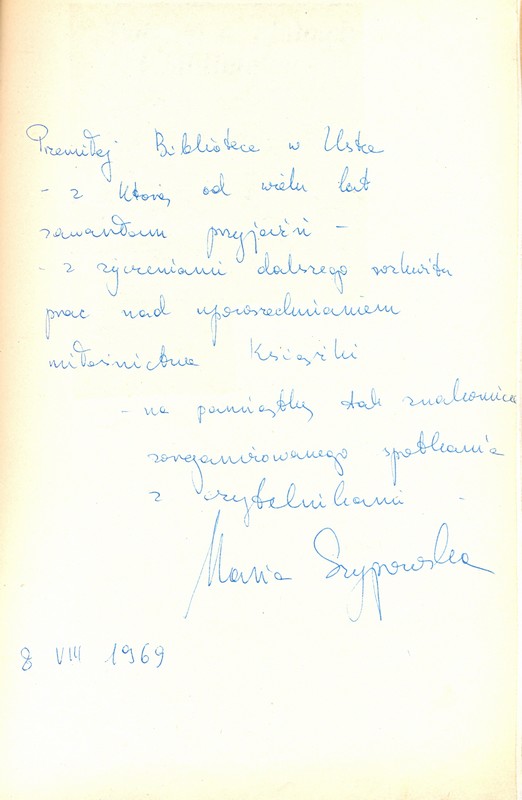 Przemiłej Bibliotece w Ustce
- z którą od wielu lat
zawarłam przyjaźń -
- z życzeniami dalszego rozkwitu
prac nad uporszechnianiem
miłośnictwa Książki
- na pamiątkę tak znakomicie
zorganizowanego spotkania
z czytelnikami -
Maria Szypowska
8 VIII 1969